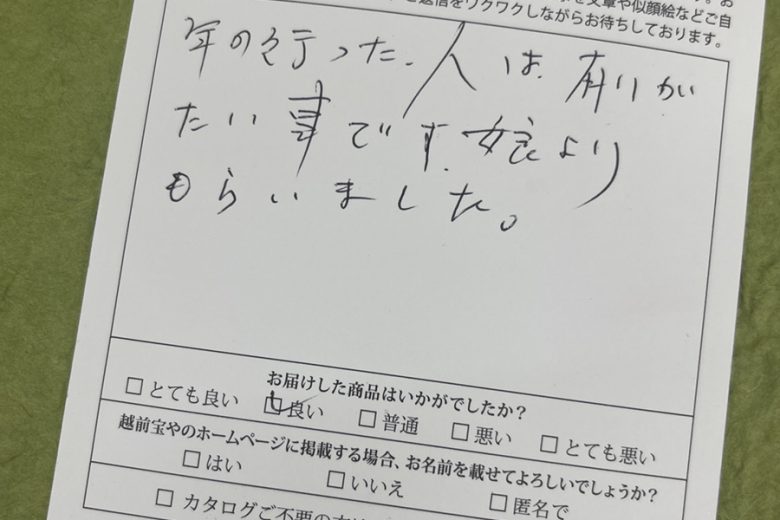 を文章や似顔絵などご自
返信をワクワクしながらお待ちしております。
年の行った人は有りがﾞ
たい事です.娘より
もらいました。
お届けした商品はいかがでしたか?
□とても良い □良い □普通 □悪い □とても悪い
越前宝やのホームページに掲載する場合、お名前を載せてよろしいでしょうか?
□はい □いいえ □匿名で
□カタログご不要の方は